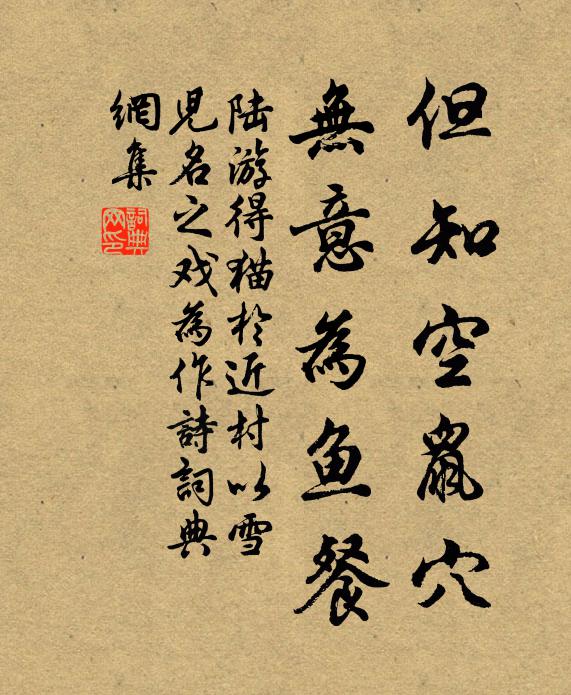 但知空鼠穴
無意為鱼餐
陆游得猫於近村以雪
児名之戏為作詩詞典
網集
詞典
网印